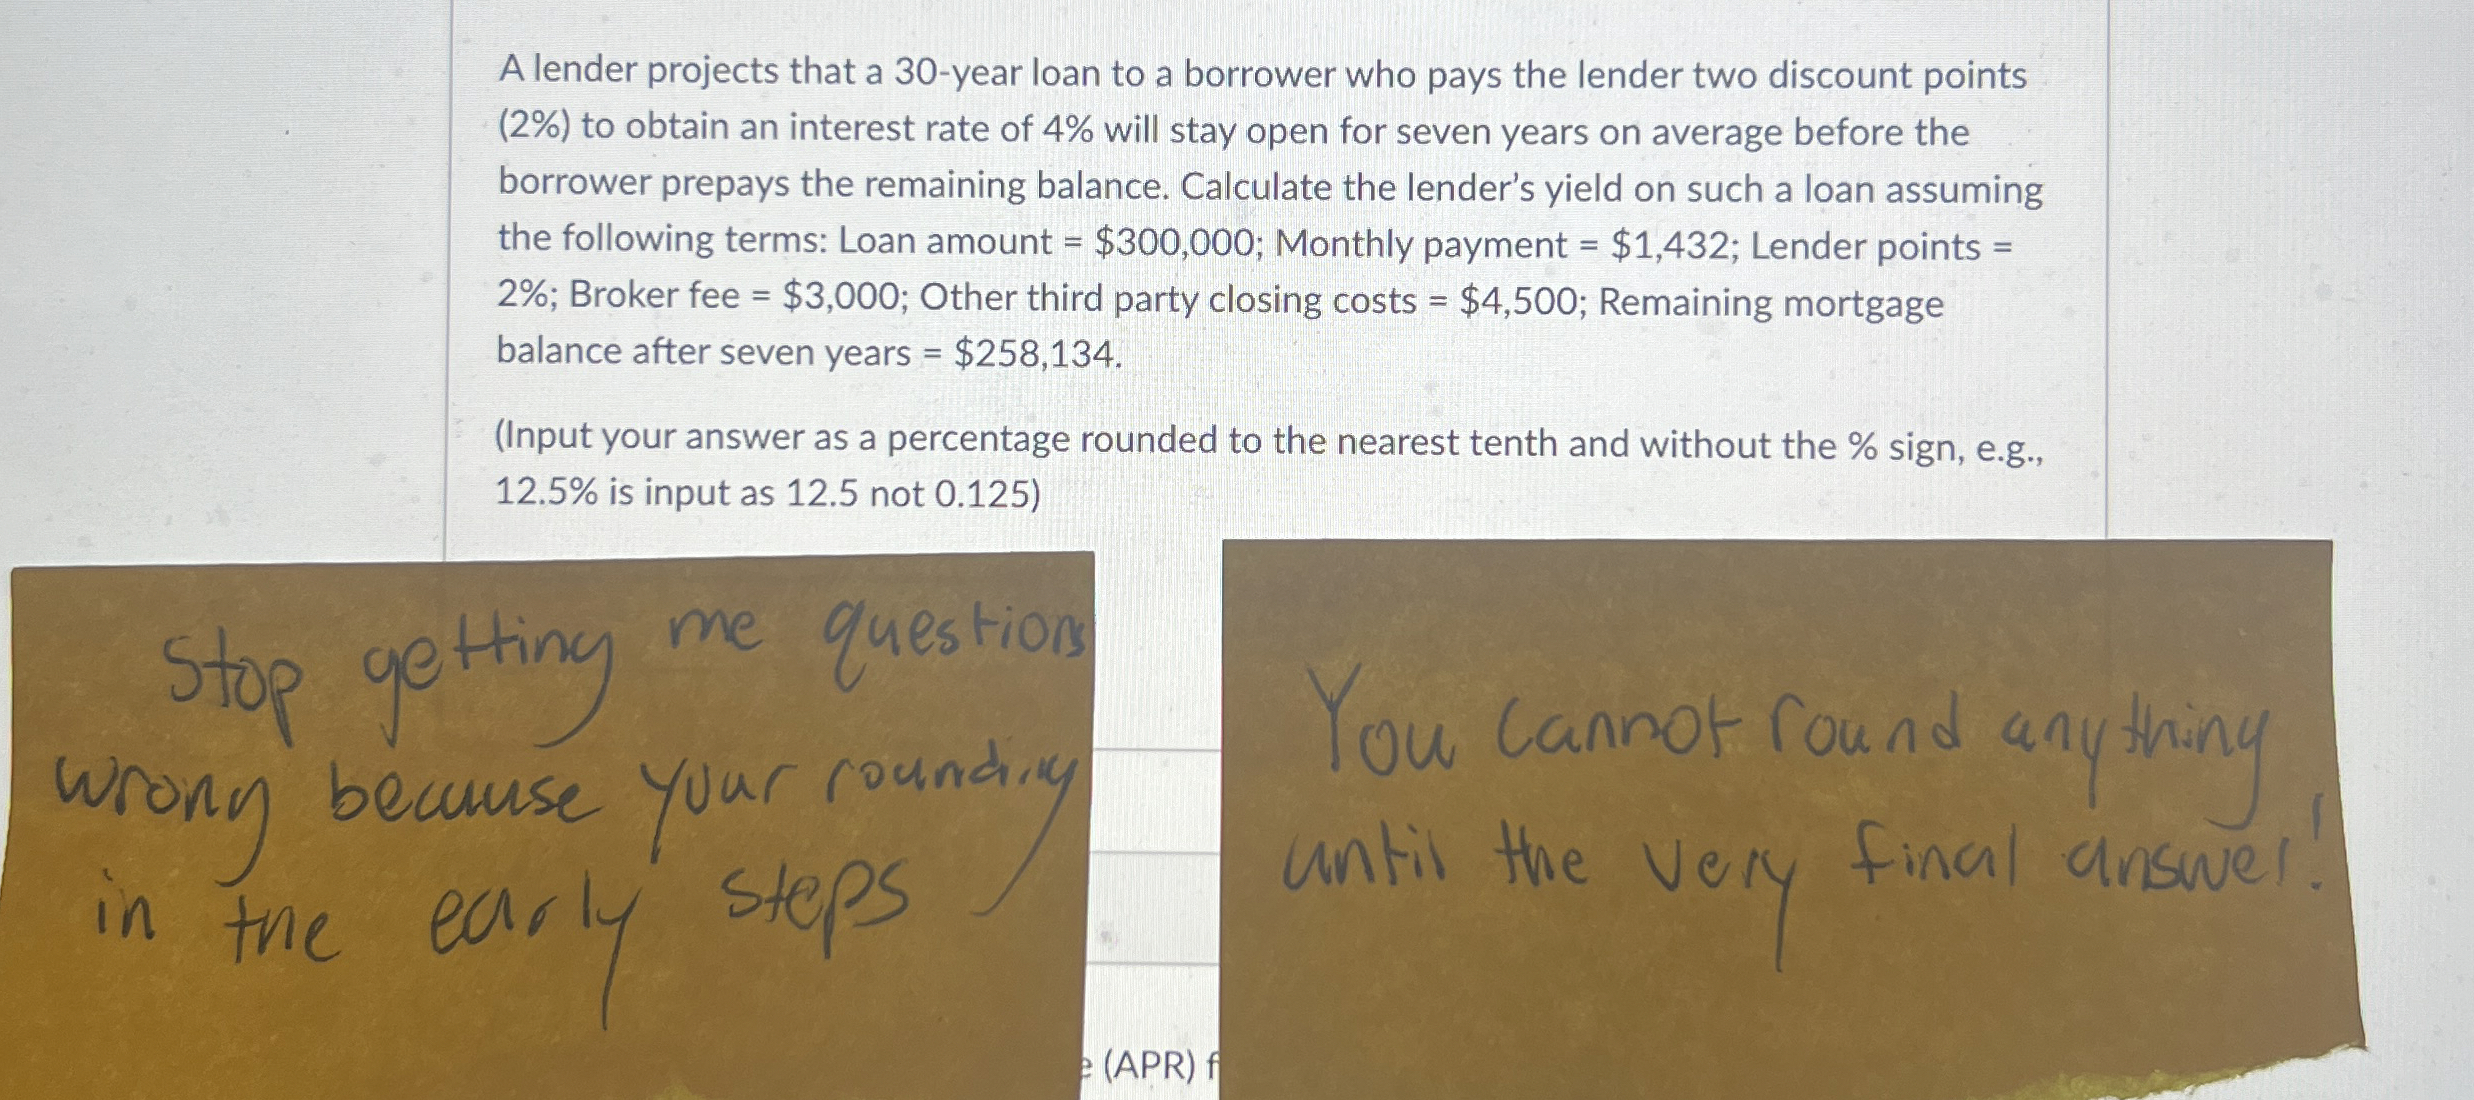 A lender projects that a 30-year loan to a borrower who pays the lender two discount points
(2%) to obtain an interest rate of 4% will stay open for seven years on average before the
borrower prepays the remaining balance. Calculate the lender's yield on such a loan assuming
the following terms: Loan amount = $300,000; Monthly payment = $1,432; Lender points =
2%; Broker fee = $3,000; Other third party closing costs = $4,500; Remaining mortgage
balance after seven years = $258,134.
(Input your answer as a percentage rounded to the nearest tenth and without the % sign, e.g.,
12.5% is input as 12.5 not 0.125)
Stop getting me questions
wrong because your rounding
in the early steps
You cannot round anything
until the very final answer!
(APR)